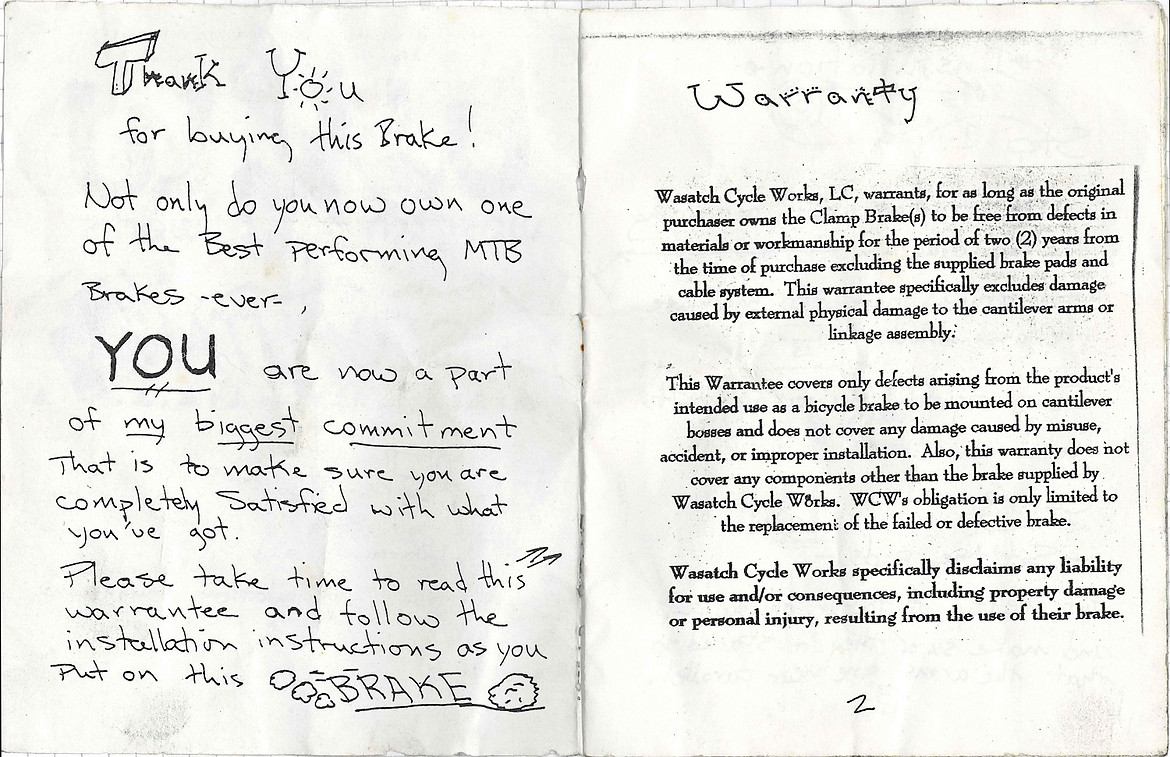 Thank You
for buying this Brake!
Not only do you now own one
of the Best performing MTB
Brakes -ever-,
YOU are now a part
of my biggest commitment
That is to make sure you are
completely Satisfied with what
you've got.
Please take time to read this
warrantee and follow the
installation instructions as you
Put on this BRAKE
Warranty
Wasatch Cycle Works, LC, warrants, for as long as the original
purchaser owns the Clamp Brake(s) to be free from defects in
materials or workmanship for the period of two (2) years from
the time of purchase excluding the supplied brake pads and
cable system. This warrantee specifically excludes damage
caused by external physical damage to the cantilever arms or
linkage assembly.
This Warrantee covers only defects arising from the product's
intended use as a bicycle brake to be mounted on cantilever
bosses and does not cover any damage caused by misuse,
accident, or improper installation. Also, this warranty does not
cover any components other than the brake supplied by
Wasatch Cycle Works. WCW's obligation is only limited to
the replacement of the failed or defective brake.
Wasatch Cycle Works specifically disclaims any liability
for use and/or consequences, including property damage
or personal injury, resulting from the use of their brake.
2